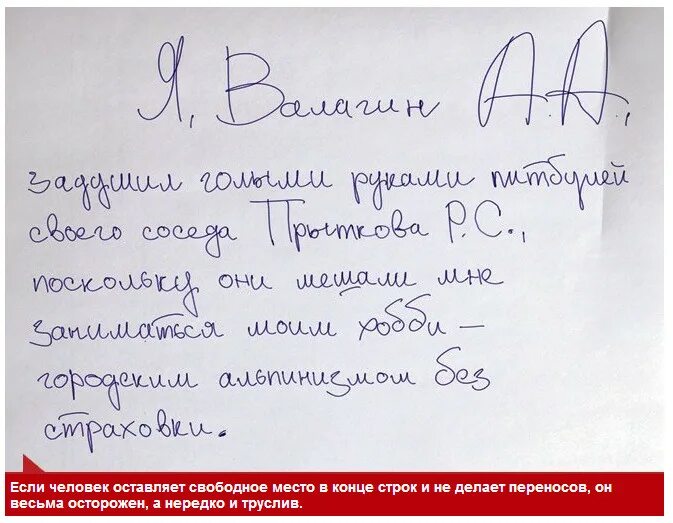 Я, Валагин А.А.,
задушил голыми руками питбулей
своего соседа Прыткова Р.С.,
поскольку они мешали мне
заниматься моим хобби –
городским альпинизмом без
страховки.
Если человек оставляет свободное место в конце строк и не делает переносов, он
весьма осторожен, а нередко и труслив.